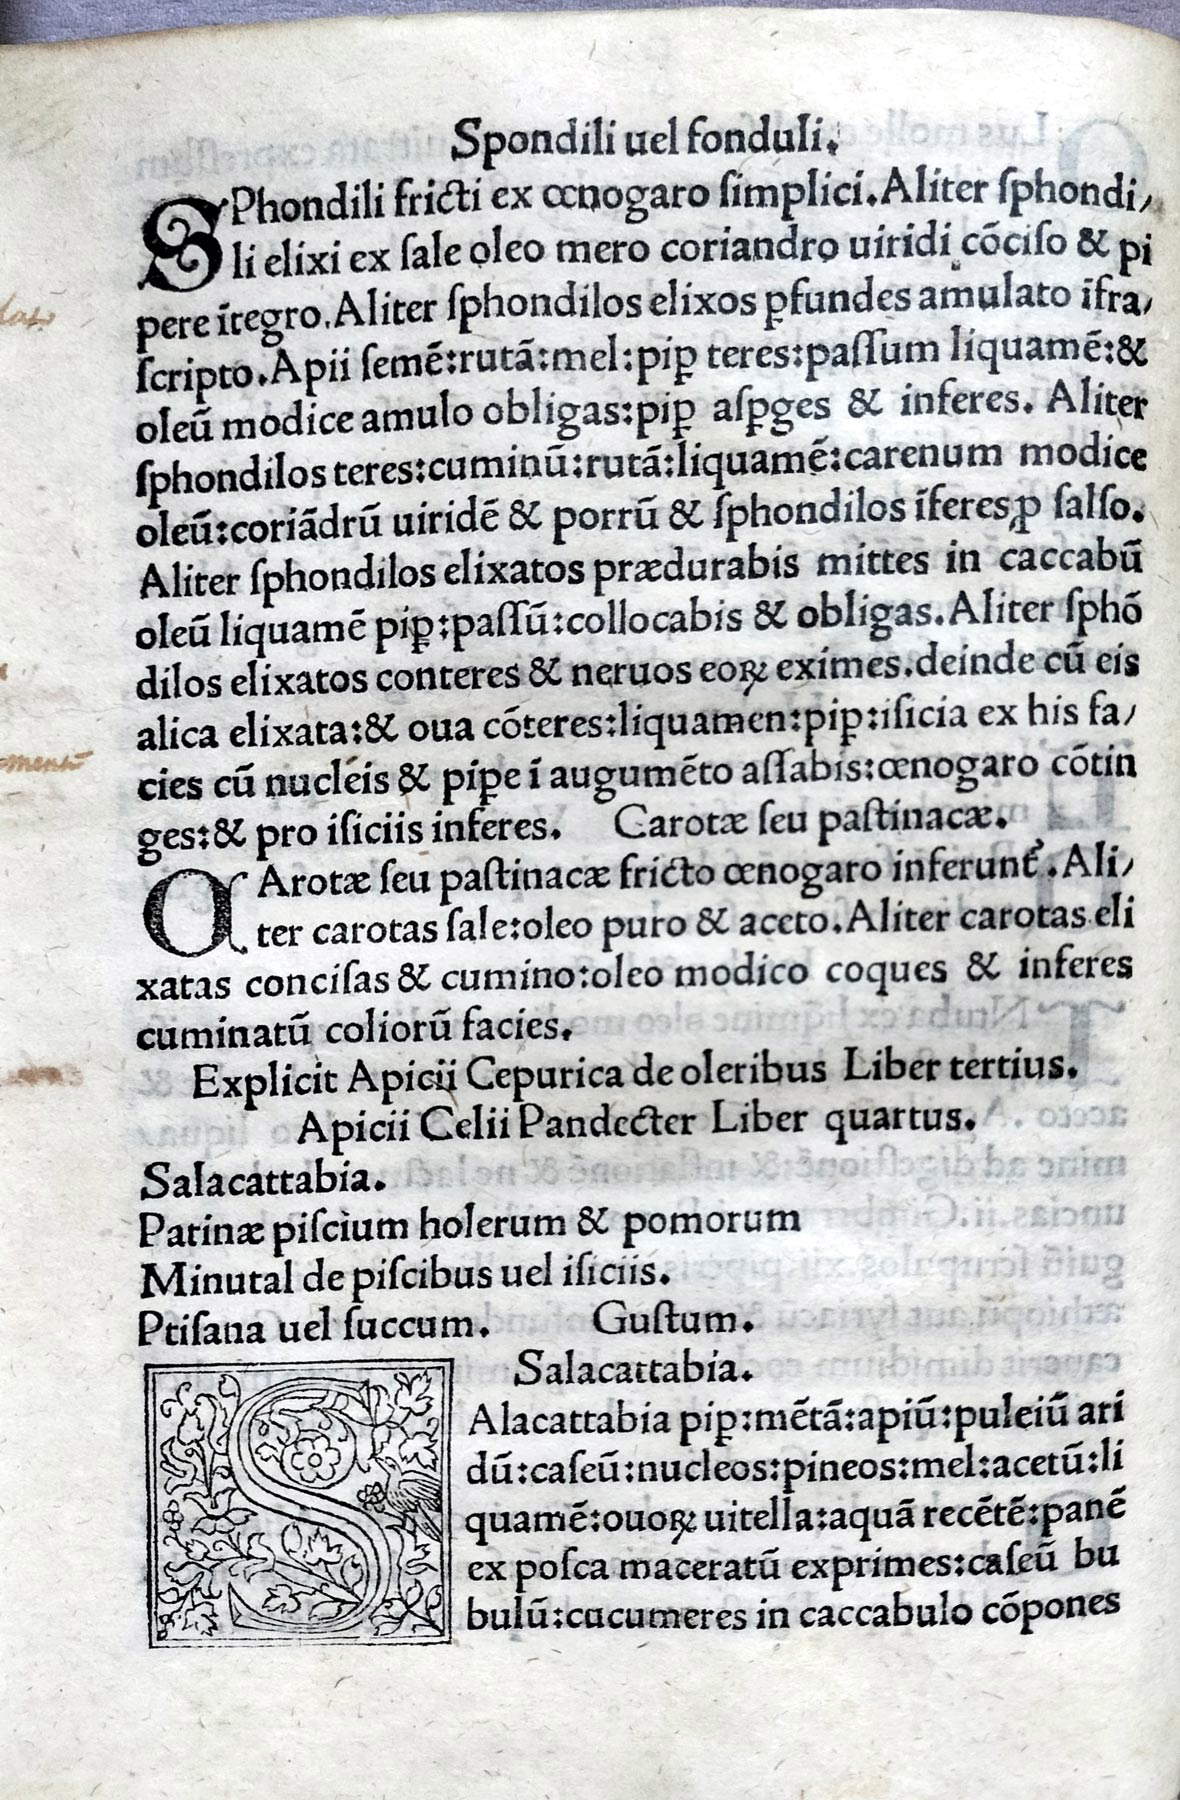 Spondili uel fonduli.
SPhondili fricti ex œnogaro ſimplici. Aliter ſphondi/
li elixi ex ſale oleo mero coriandro uiridi cōciſo & pi
pere ītegro. Aliter ſphondilos elixos ꝑfundes amulato īfra/
ſcripto. Apii ſemē: rutā: mel: piꝑ teres: paſſum liquamē: &
oleū modice amulo obligas: piꝑ aſꝑges & inferes. Aliter
ſphondilos teres: cuminū: rutā: liquamē: carenum modice
oleū: coriādrū uiridē & porrū & ſphondilos īferes ꝓ ſalſo.
Aliter ſphondilos elixatos prædurabis mittes in caccabū
oleū liquamē piꝑ: paſſū: collocabis & obligas. Aliter ſphō
dilos elixatos conteres & neruos eoꝝ eximes. deinde cū eis
alica elixata: & oua cōteres: liquamen: piꝑ: iſicia ex his fa/
cies cū nucleis & piꝑe ī augumēto aſſabis: œnogaro cōtin
ges: & pro iſiciis inferes. Carotæ ſeu paſtinacæ.
CArotæ ſeu paſtinacæ fricto œnogaro inferunt᷒. Ali/
ter carotas ſale: oleo puro & aceto. Aliter carotas eli
xatas conciſas & cumino: oleo modico coques & inferes
cuminatū coliorū facies.
Explicit Apicii Cepurica de oleribus Liber tertius.
Apicii Celii Pandecter Liber quartus.
Salacattabia.
Patinæ piſcium holerum & pomorum
Minutal de piſcibus uel iſiciis.
Ptiſana uel ſuccum. Guſtum.
Salacattabia.
SAlacattabia piꝑ: mētā: apiū: puleiū ari
dū: caſeū: nucleos: pineos: mel: acetū: li
quamē: ouoꝝ uitella: aquā recētē: panē
ex poſca maceratū exprimes: caſeū bu
bulū: cucumeres in caccabulo cōpones